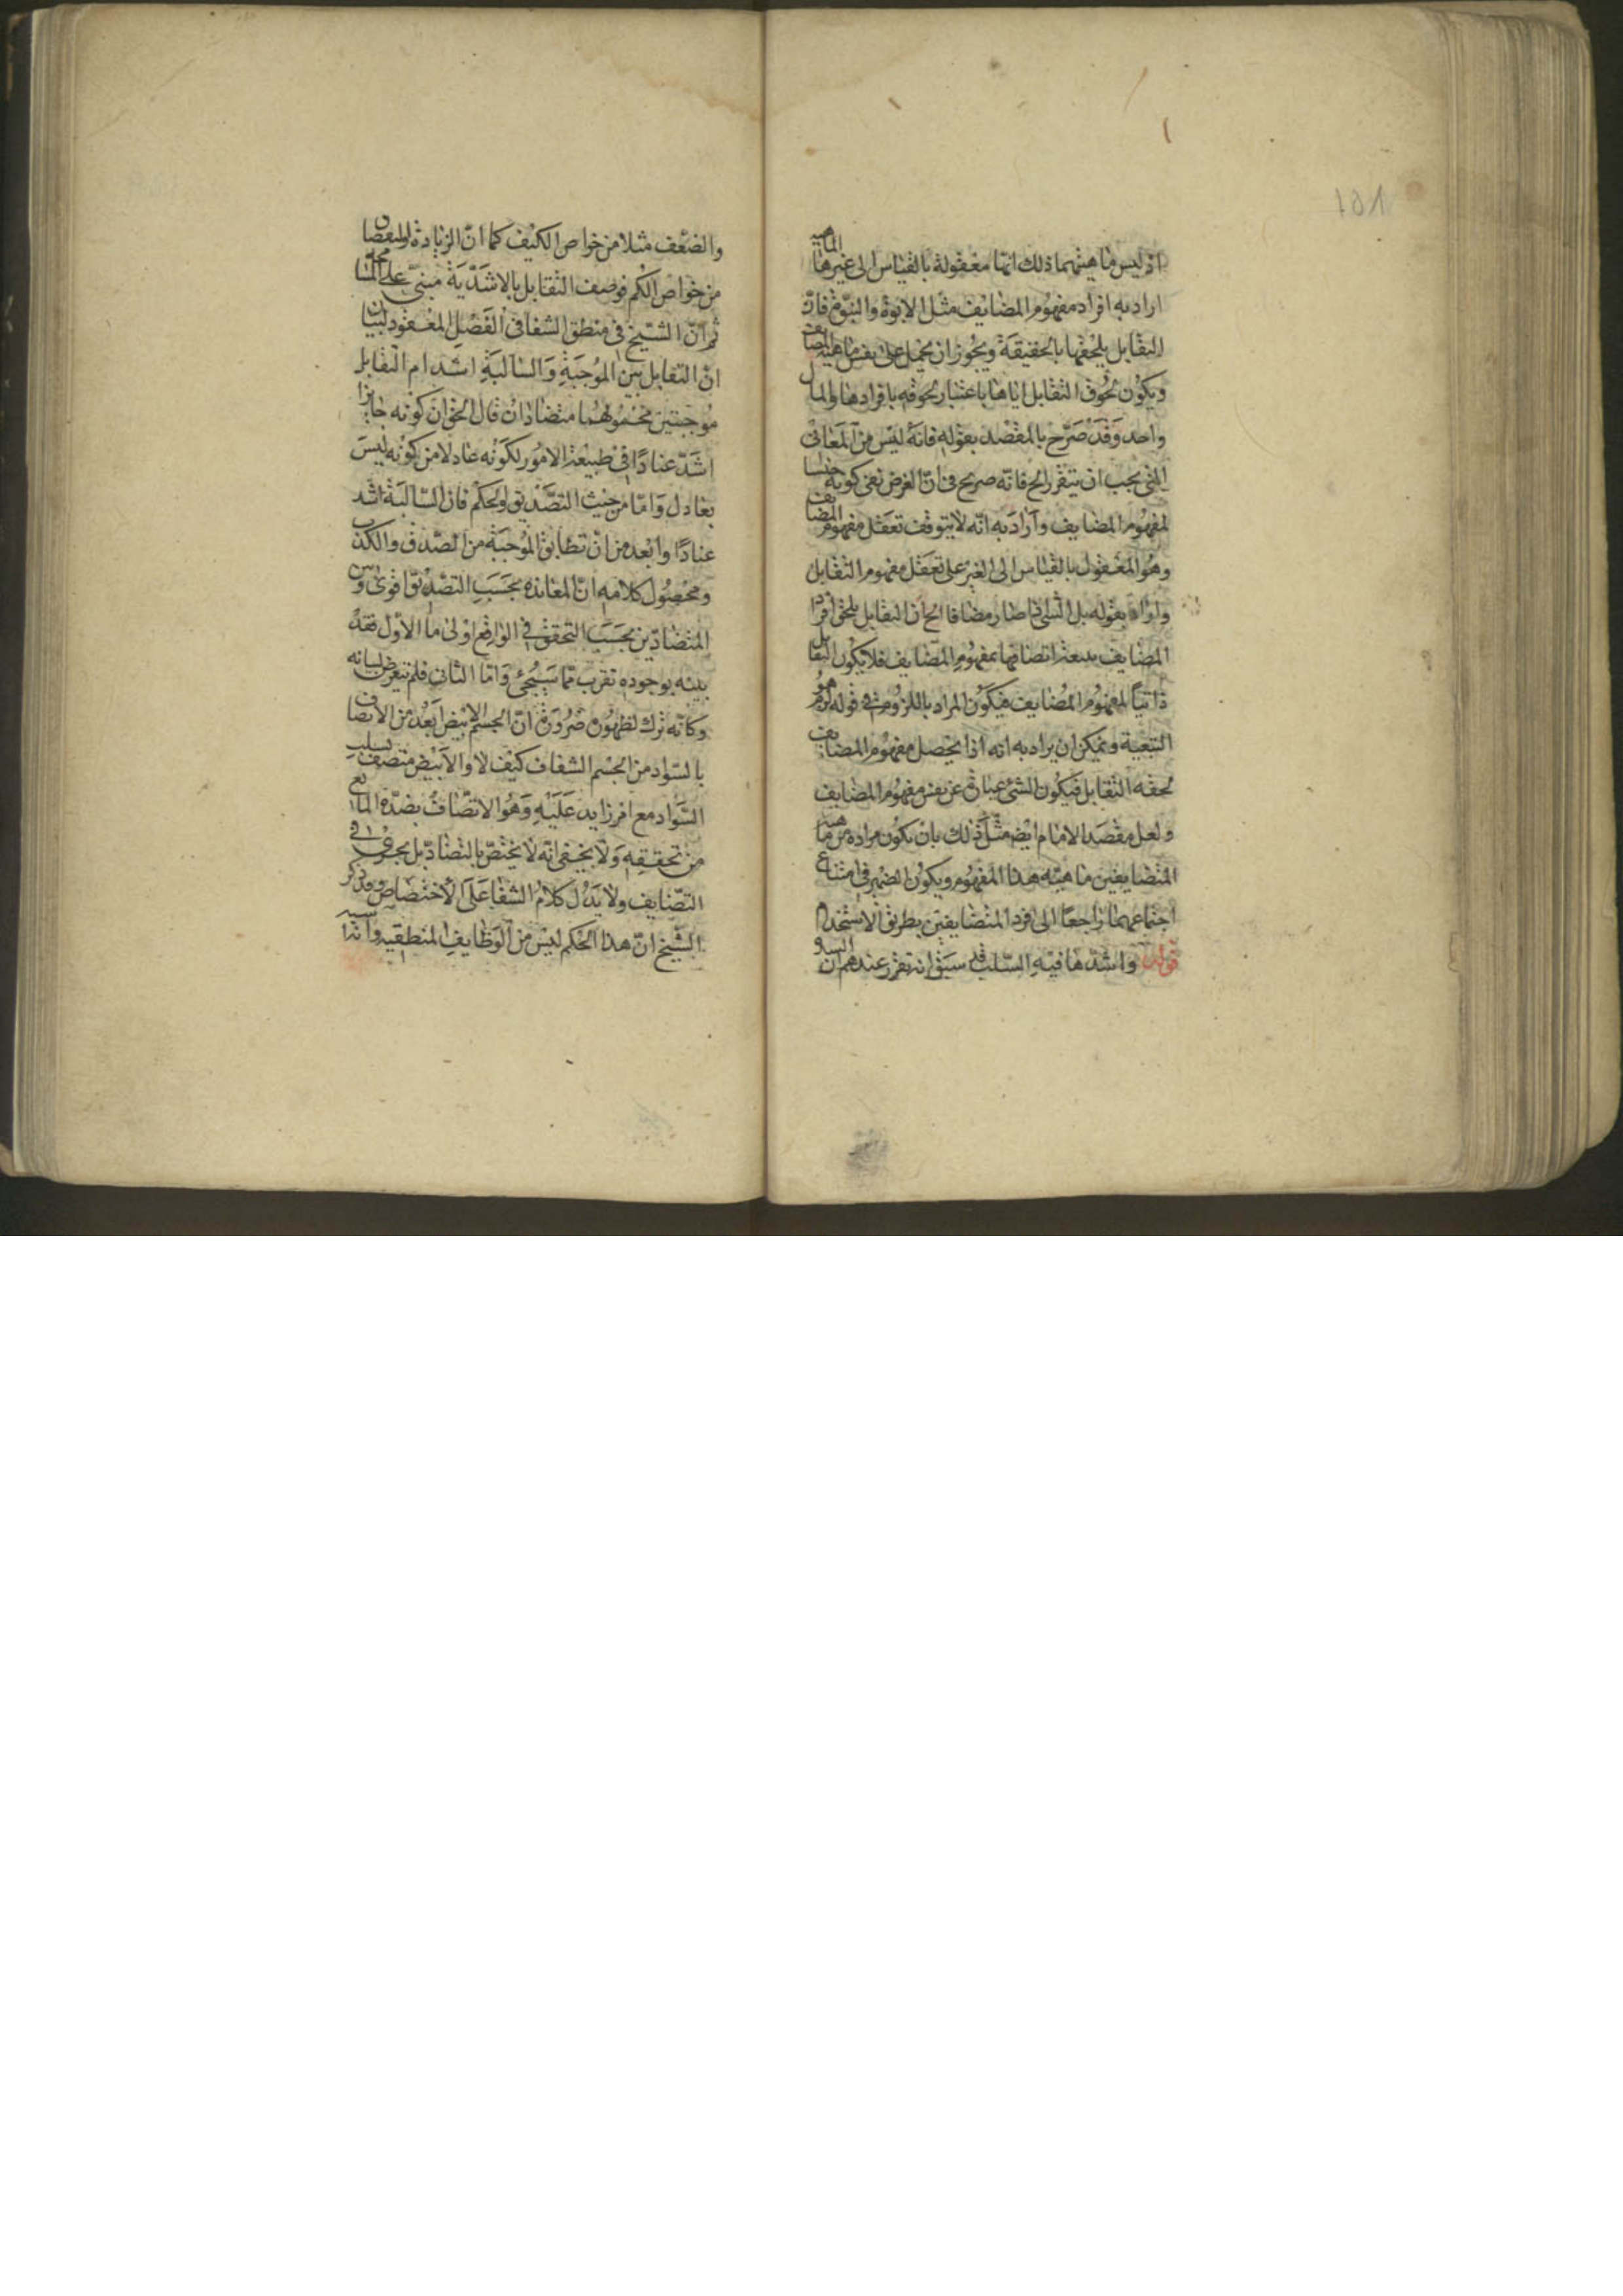 اذ ليس ماهيتهما ذلك انها معقولة بالقياس الى غيرها الماهية
اراد به افراد مفهوم المضايف مثل الابوة والبنوة فان
التقابل يلحقها بالحقيقة ويجوز ان يحمل على نفس ماهية المضايف
ويكون لحوق التقابل اياها باعتبار لحوقه بافرادها والمال
واحد وقد صرح بالمقصد بقوله فانه ليس من المعانى
التى يجب ان يتقرر الخ فانه صريح فى ان الغرض نفى كونه جنسا
لمفهوم المضايف واراد به انه لا يتوقف تعقل مفهوم المضايف
وهو المعقول بالقياس الى الغير على تعقل مفهوم التقابل
واراد بقوله بل الشى اذا صار مضافا الخ ان التقابل يلحق افراد
المضايف بعد اتصافها بمفهوم المضايف فلا يكون التقابل
ذاتيا لمفهوم المضايف فيكون المراد باللزوم فى قوله لزوم هو
التبعية ويمكن ان يراد به انه اذا يحصل مفهوم المضايف
لحقه التقابل فيكون الشئ عبارة عن نفس مفهوم المضايف
ولعل مقصد الامام ايضا مثل ذلك بان يكون مراده من ماهية
المتضايفين ماهيته هذا المفهوم ويكون الضمير فى امتناع
اجتماعهما راجعا الى فرد المتضايفين بطريق الاستخدام
قوله واشدها فيه السلب قد سبق انه تقرر عندهم ان
والضعف مثلا من خواص الكيف كما ان الزيادة والنقصان
من خواص الكم فوصف التقابل بالاشدية مبنى على المسامحة
ثم ان الشيخ فى منطق الشفا فى الفصل المعقود لبيان
ان التقابل بين الموجبة والسالبة اشد ام التقابل
موجبتين محمولهما متضادان قال الحق ان كونه جايزا
اشد عنادا فى طبيعة الامور لكونه عادلا من كونه ليس
بعادل واما من حيث التصديق والحكم فان السالبة اشد
عنادا وابعد من ان تطابق الموجبة من الصدق والكذب
ومحصول كلامه ان المعاندة بحسب التصديق اقوى وبين
المتضادين بحسب التحقق فى الواقع اولى اما الاول فقد
بينه بوجوده تقرب مما سيجئ واما الثانى فلم يتعرض لبيانه
وكانه ترك لظهوره ضرورة ان الجسم الابيض ابعد من الاتصاف
بالسواد من الجسم الشفاف كيف لا والابيض متصف بسلب
السواد مع امر زايد عليه وهو الاتصاف بضده المانع
من تحققه ولا يخفى انه لا يختص بالتضاد بل يجرى فى
التضايف ولا يدل كلام الشفا على الاختصاص وقد ذكر
الشيخ ان هذا الحكم ليس من الوظايف المنطقيه